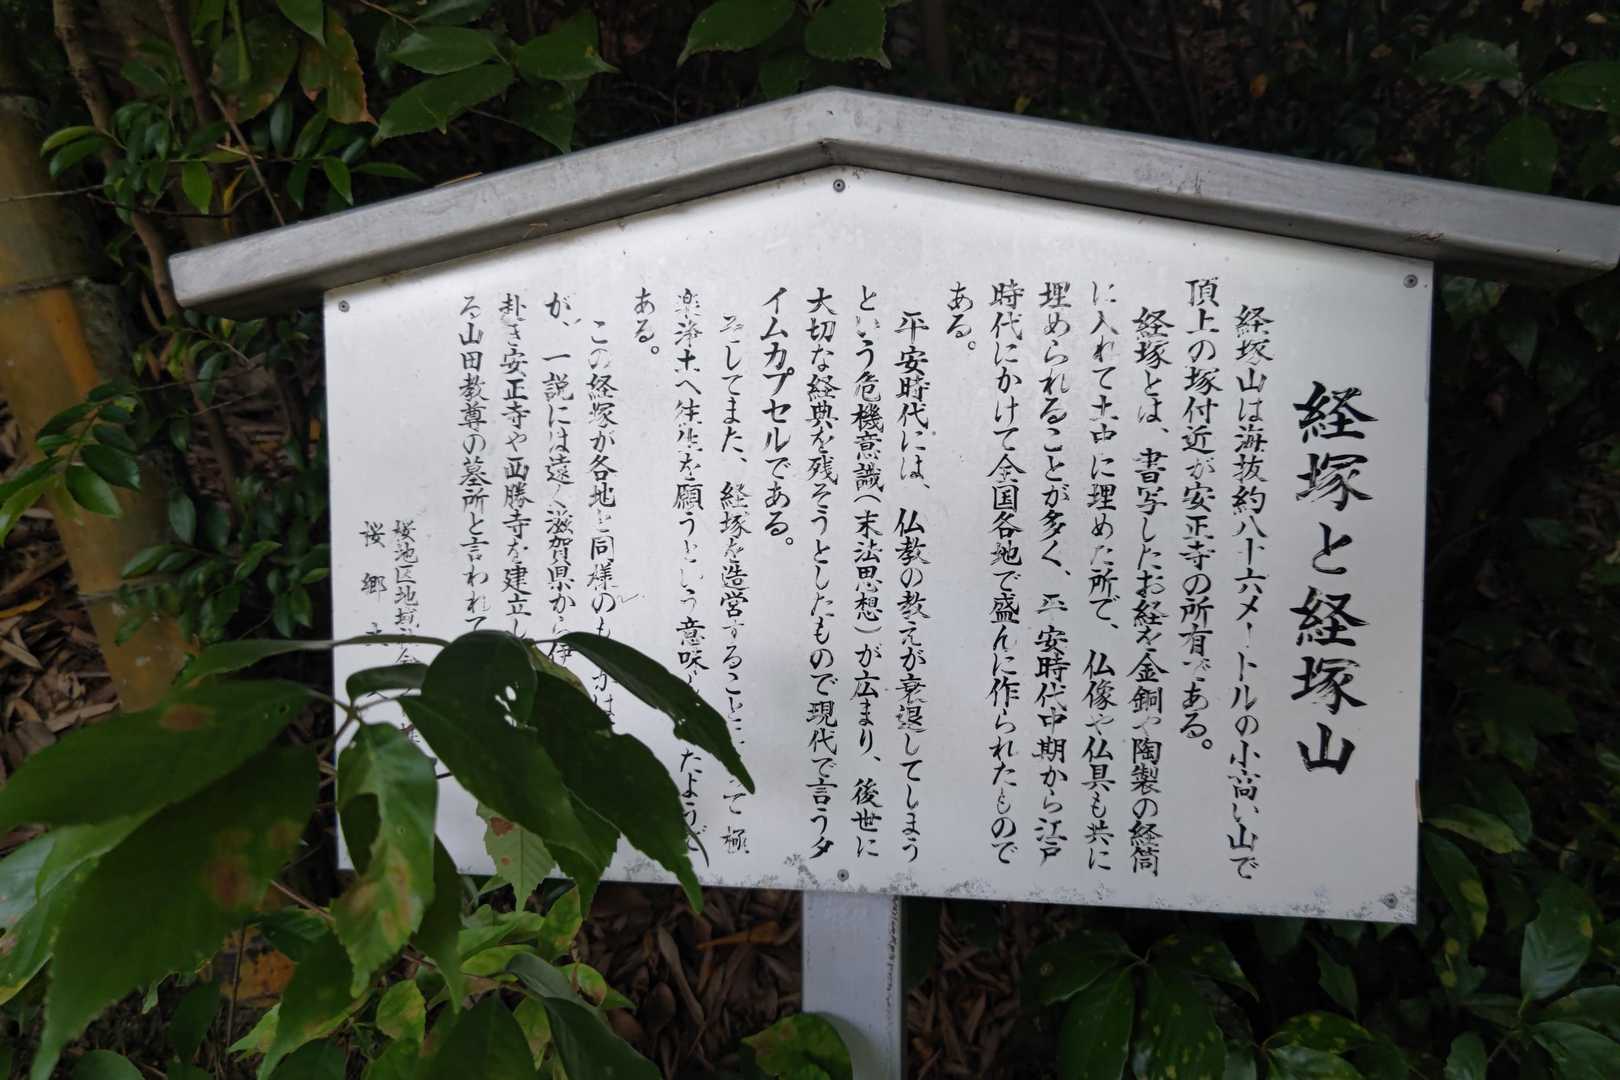 経塚と経塚山
経塚山は海抜約八十六メートルの小高い山で
頂上の塚付近が安正寺の所有である。
経塚とは、書写したお経を金銅や陶製の経筒
に入れて土中に埋めた所で、仏像や仏具も共に
埋められることが多く、平安時代中期から江戸
時代にかけて全国各地で盛んに作られたもので
ある。
平安時代には、仏教の教えが衰退してしまう
という危機意識(末法思想)が広まり、後世に
大切な経典を残そうとしたもので現代で言うタ
イムカプセルである。
そしてまた、経塚を造営することによって極
楽浄土へ往生を願うという意味 たようで
ある。
この経塚が各地と同様のも
が、一説には遠く滋賀県から伊
赴き安正寺や西勝寺を建立し
る山田教尊の墓所と言われて
桜地区地域
桜郷